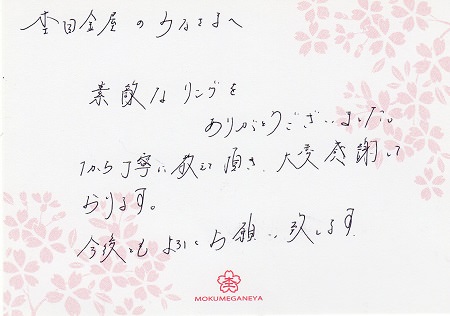 杢目金屋のみなさまへ
素敵なリングを
ありがとうございました。
1から丁寧に教えて頂き、大変感謝して
おります。
今後ともよろしくお願い致します。
MOKUMEGANEYA